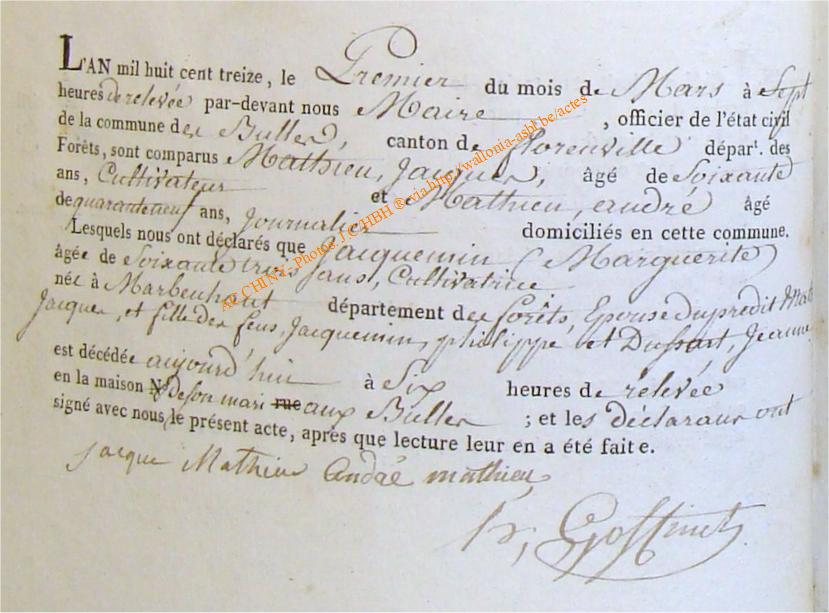 L'AN mil huit cent treize, le Premier du mois de Mars à Sept
heures de relevée par-devant nous Maire, officier de l'état civil
de la commune des Bulles, canton de florenville dépar<sup>t</sup>. des
Forêts, sont comparus Mathieu, Jacques, âgé de Soixante
ans, Cultivateur et Mathieu, andré âgé
de quaranteneuf ans, Journalier domiciliés en cette commune.
Lesquels nous ont déclarés que Jacquemin (Marguerite)
âgée de Soixante trois ans, Cultivatrice
née à Marbenhant département des forêts, Epouse du prédit Math
Jacques, et fille des feus, Jacquemin, philippe et Dussart, Jeanne
est décédée aujourd'hui à Six heures de relevée
en la maison N° de son mari rue aux Bulles ; et les déclarans ont
signé avec nous le présent acte, après que lecture leur en a été faite.
Jacque Mathieu andré mathieu
Goffinet
AECHINY- Photos J.C HBH ® via http://wallonia-asbl.be/actes